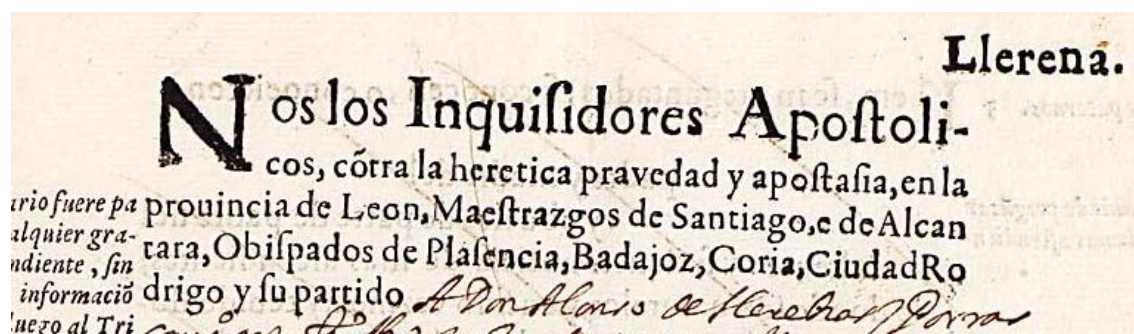 Llerená.
Nos los Inquiſidores Apoſtoli-
cos, cõtra la heretica pravedad y apoſtaſia, en la
prouincia de Leon, Maeſtrazgos de Santiago, e de Alcan
tara, Obiſpados de Plaſencia, Badajoz, Coria, Ciudad Ro
drigo y ſu partido A Don Alonso de
ario fuere pa
alquier gra-
ndiente, ſin
informaciõ
luego al Tri